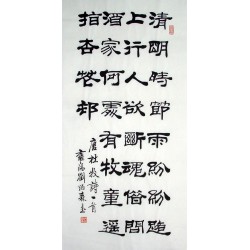 清明時節雨紛紛路
上行人欲斷魂借問
酒家何處有牧童遥
指杏花邨
唐杜牧詩一首
劉